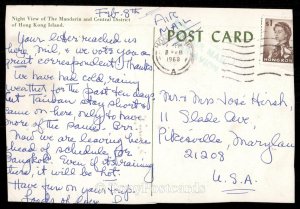 Night View of The Mandarin and Central District
of Hong Kong Island.
Feb. 8th
AIR
MAIL
POST CARD
$1
HONG KONG
1968
Your letter reached us
here, Mil, & we vote you a
great correspondent! Thanks
We have had cold, rainy
weather for the past ten days
but Taiwan stay short &
came on here, only to have
more of the same. Brr.
Now we are leaving here
ahead of schedule for
Bangkok. Even if it's raining
there, it will be hot.
Have fun on your
Loads of love
Mr & Mrs José Hirsh,
11 Slade Ave
Pikesville, Maryland
21208
U.S.A.